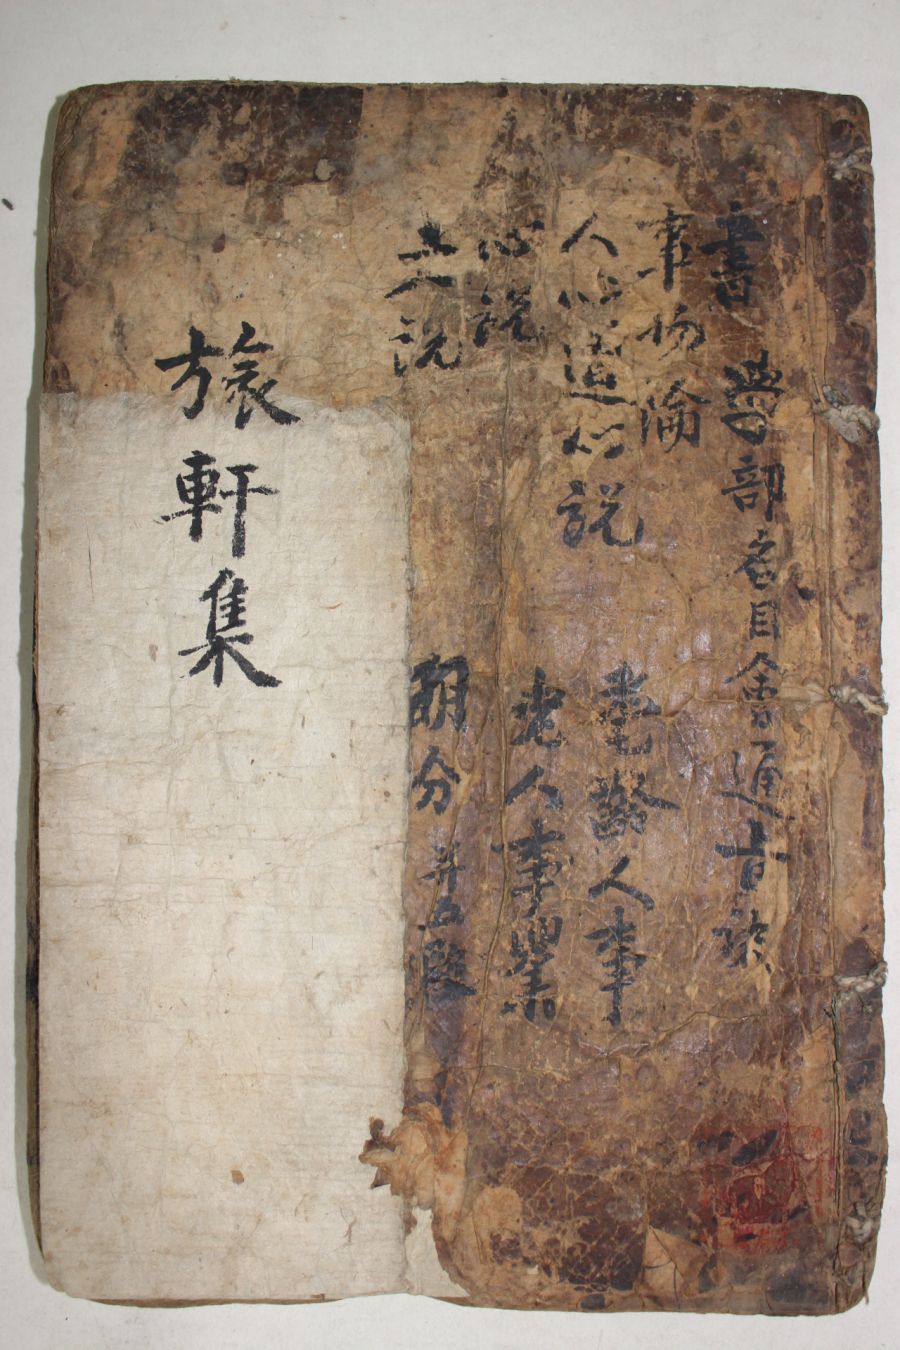 書
學部名目會通旨訣
事物論
人心道心說
耄齡人事
心說
老人事業
文說
明分 并五段
旅軒集